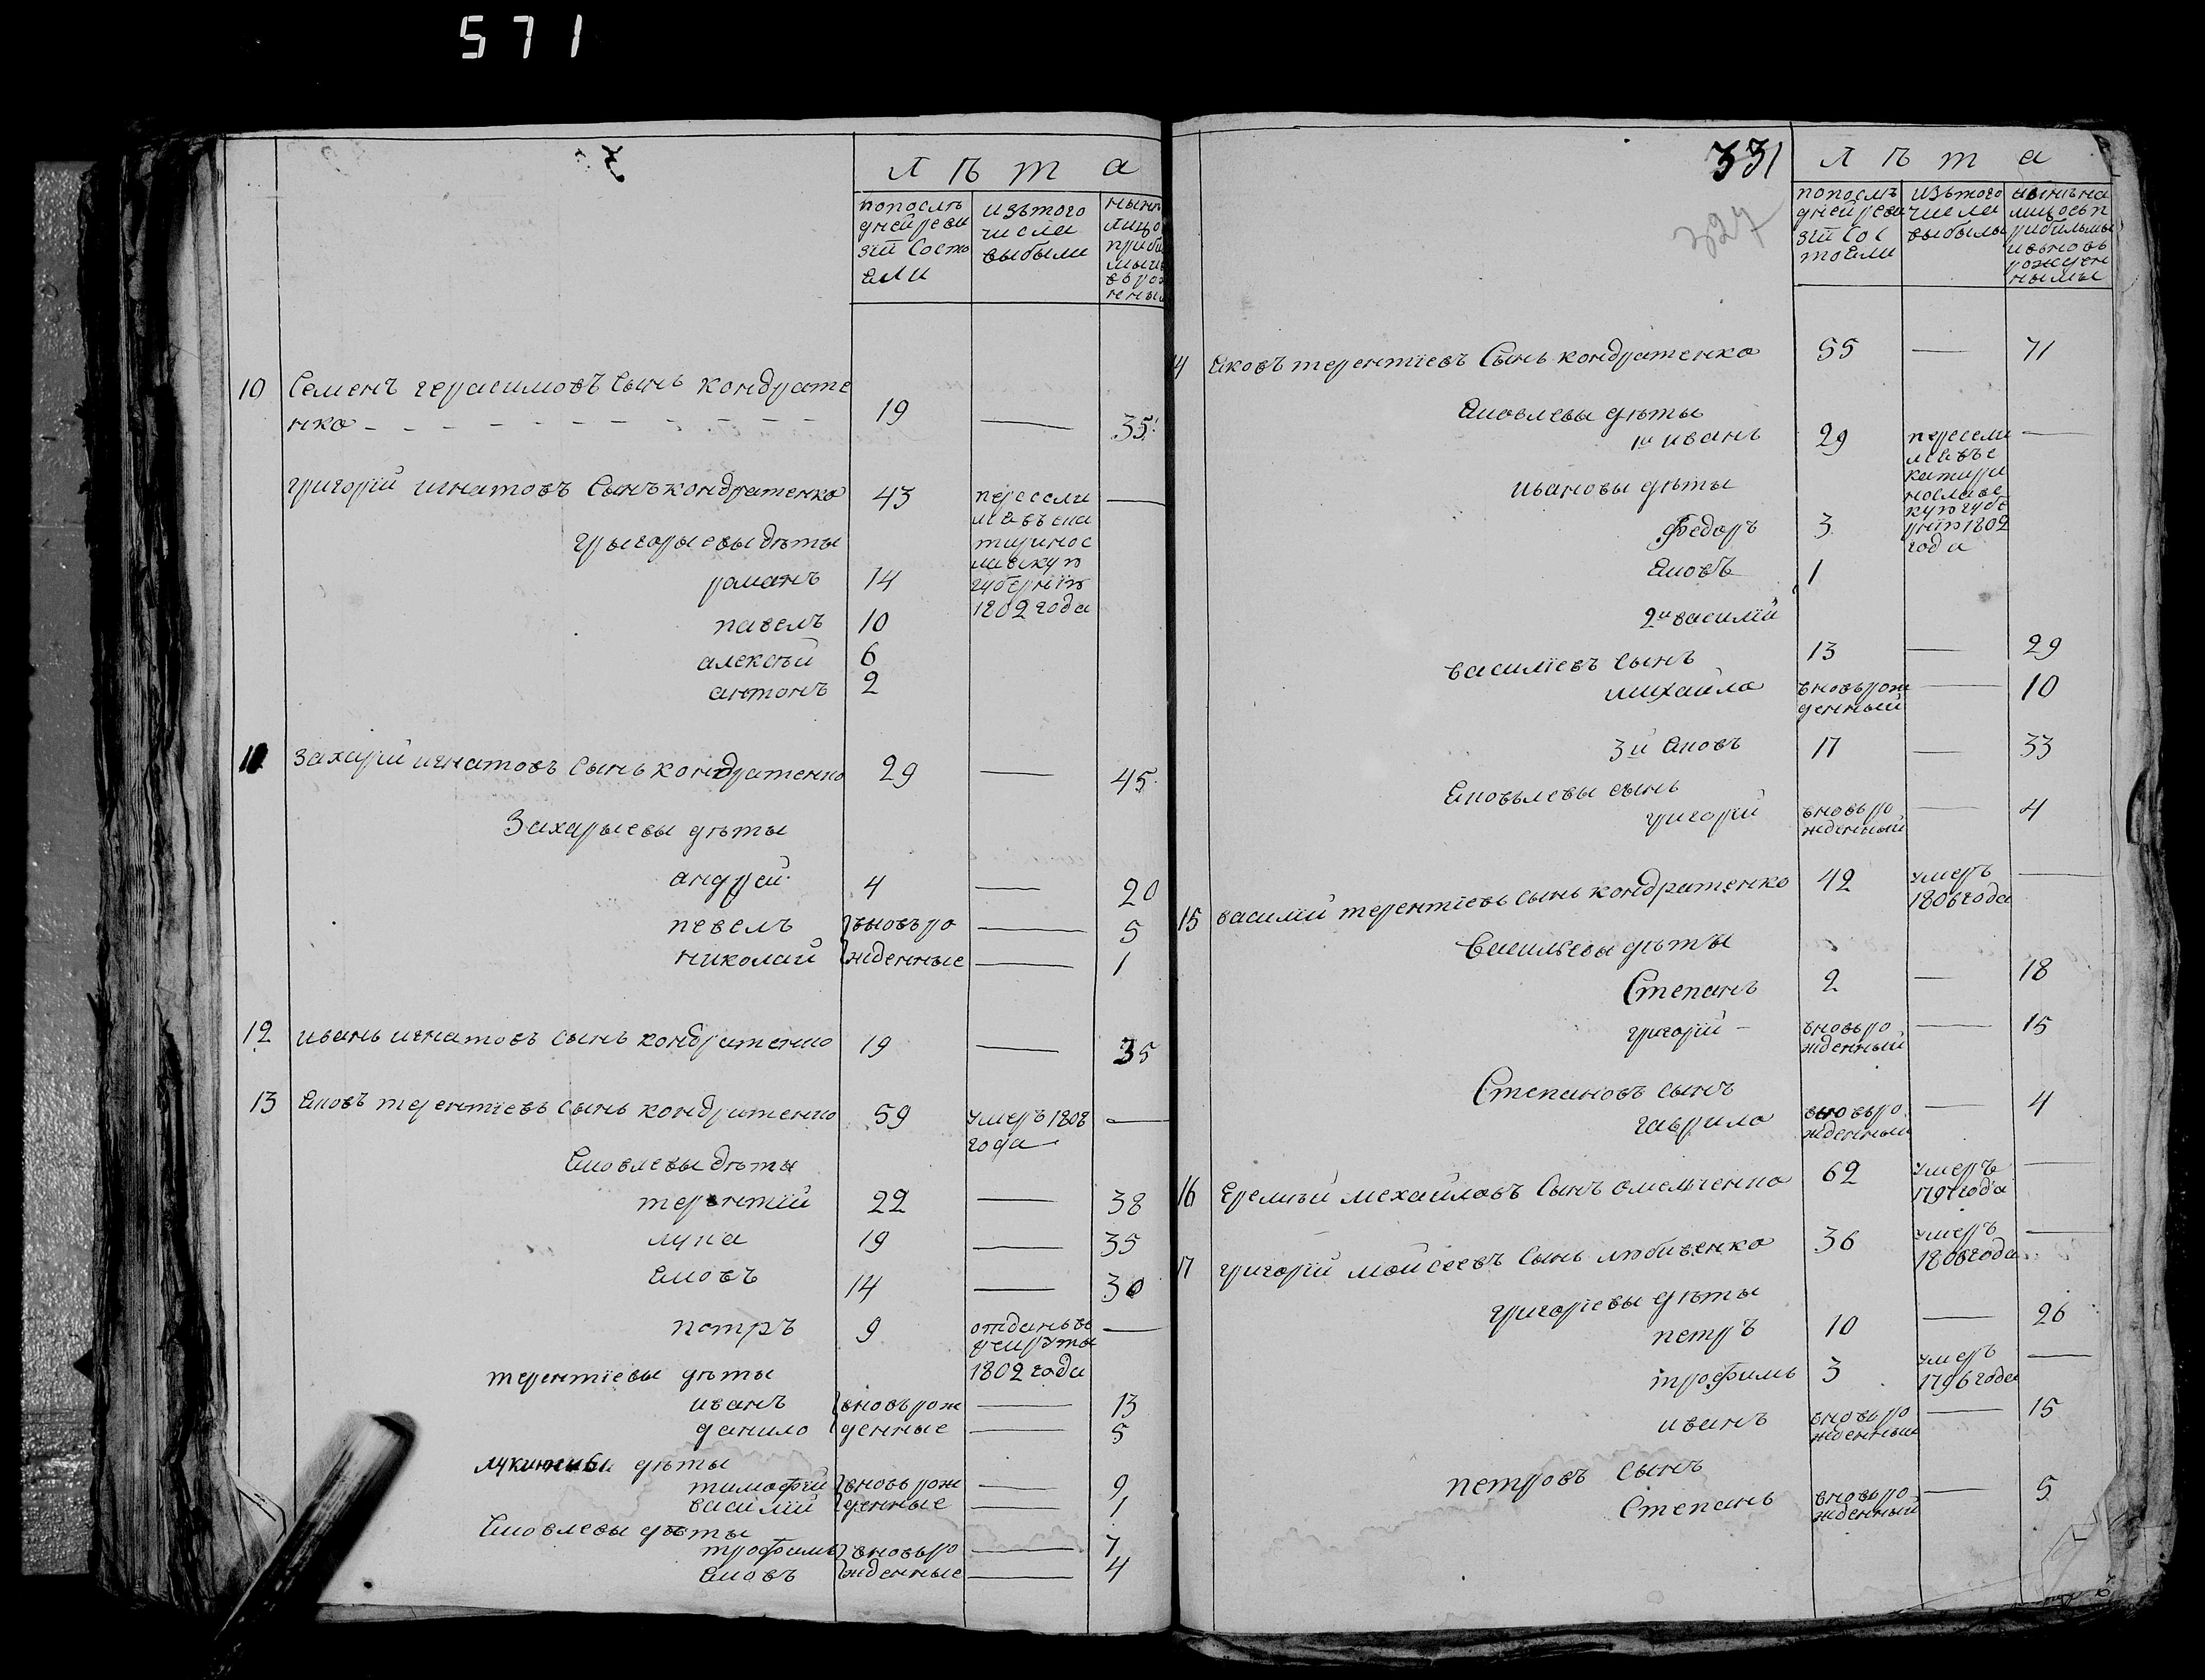 571
л ѣ т а
попослѣ
дней реви
зїй состо
яли
изътого
числа
выбыли
10 Семенъ герасимовъ сынъ кондрате
нко - - - - - - - - - 19 — 35
григорїй игнатовъ сынъ кондратенко 43 пересели —
лся въ ека
теринос
лавскую
губернїю
1802 года
грыгорыевы дѣты
романъ 14
павелъ 10
алексѣй 6
антонъ 2
11 Захарїй игнатовъ сынъ кондратенко 29 — 45
Захарыевы дѣты
андрей 4 — 20
певелъ вновъ ро — 5
николай жденные — 1
12 иванъ игнатовъ сынъ кондратенко 19 — 35
13 Яковъ терентїевъ сынъ кондратенко 59 умеръ 1808 —
года
Яковлевы дѣты
терентїй 22 — 38
лука 19 — 35
Яковъ 14 — 30
петръ 9 отданъ въ —
рекруты
1802 года
терентїевы дѣты
иванъ вновъ рож — 13
данило денные — 5
дѣты
тимофїй вновь рож — 9
василїй денные — 1
Яковлевы дѣты
трофимъ вновь ро — 7
Яковъ жденные — 4
331
327
л ѣ т а
попослѣ
дней реви
зїй сос
тояли
изътого
числа
выбыли
нынѣ на
лицо съ п
рибылымы
и вновь
рожден
нымы
14 Яковъ терентїевъ Сынъ кондратенко 55 — 71
Яковлевы дѣты
1й иванъ 29 пересели —
лся въ е
катери
нославс
кую губе
рнїю 1802
года
ивановы дѣты
Федоръ 3
Яковъ 1
2й василїй 13 — 29
василїевъ сынъ
михайло вновь рож — 10
денный
3й Яковъ 17 — 33
Яковълевы сынъ
григорїй вновь ро — 4
жденный
15 василїй терентїевъ сынъ кондратенко 42 умеръ —
1806 года
Васильевы дѣты
Степанъ 2 — 18
григорїй — вновь ро — 15
жденный
Степановъ сынъ
гаврило вновь ро — 4
жденный
16 Еремѣй мехайловъ Сынъ омелченко 62 умеръ —
1797 года
17 григорїй мойсеевъ Сынъ любивенко 36 умеръ —
1806 года
григорїевы дѣты
петръ 10 — 26
трофимъ 3 умеръ —
1796 года
иванъ вновь ро — 15
жденный
петровъ сынъ
Степанъ вновь ро — 5
жденный